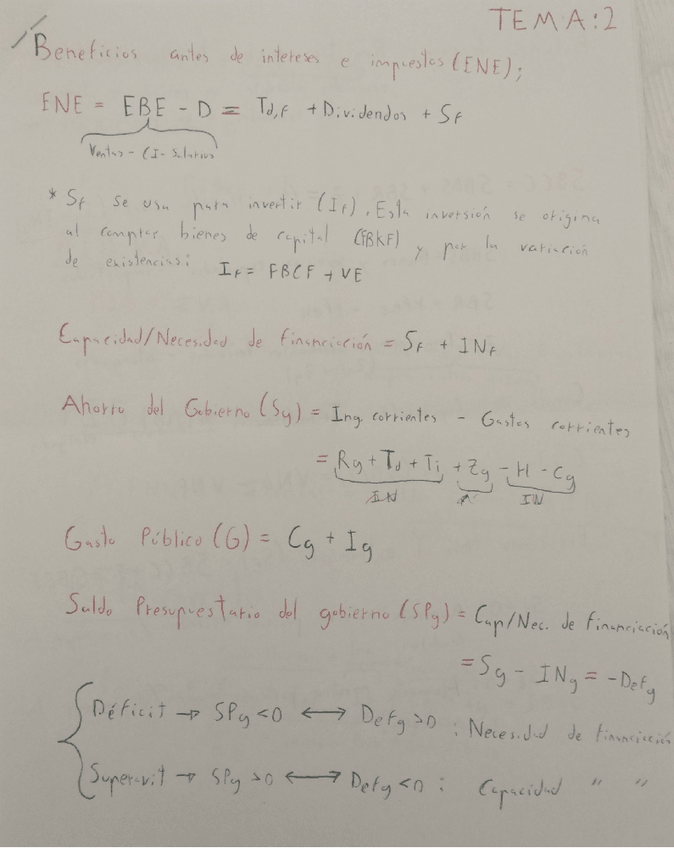 TEMA:2
Beneficios antes de intereses e impuestos (ENE);
ENE = EBE - D = Td,f + Dividendos + Sf
Ventas - CI - Salarios
* Sf se usa para invertir (If). Esta inversión se origina
al comprar bienes de capital (FBKF) y por la variación
de existencias: If = FBCF + VE
Capacidad/Necesidad de financiación = Sf + INf
Ahorro del Gobierno (Sg) = Ing. corrientes - Gastos corrientes
= Rg + Td + Ti + Zg - H - Cg
IN IN
Gasto Público (G) = Cg + Ig
Saldo Presupuestario del gobierno (SPg) = Cap/Nec. de financiación
= Sg - INg = -Defg
Déficit → SPg < 0 ⟷ Defg > 0 : Necesidad de financiación
Superavit → SPg > 0 ⟷ Defg < 0 : Capacidad " "